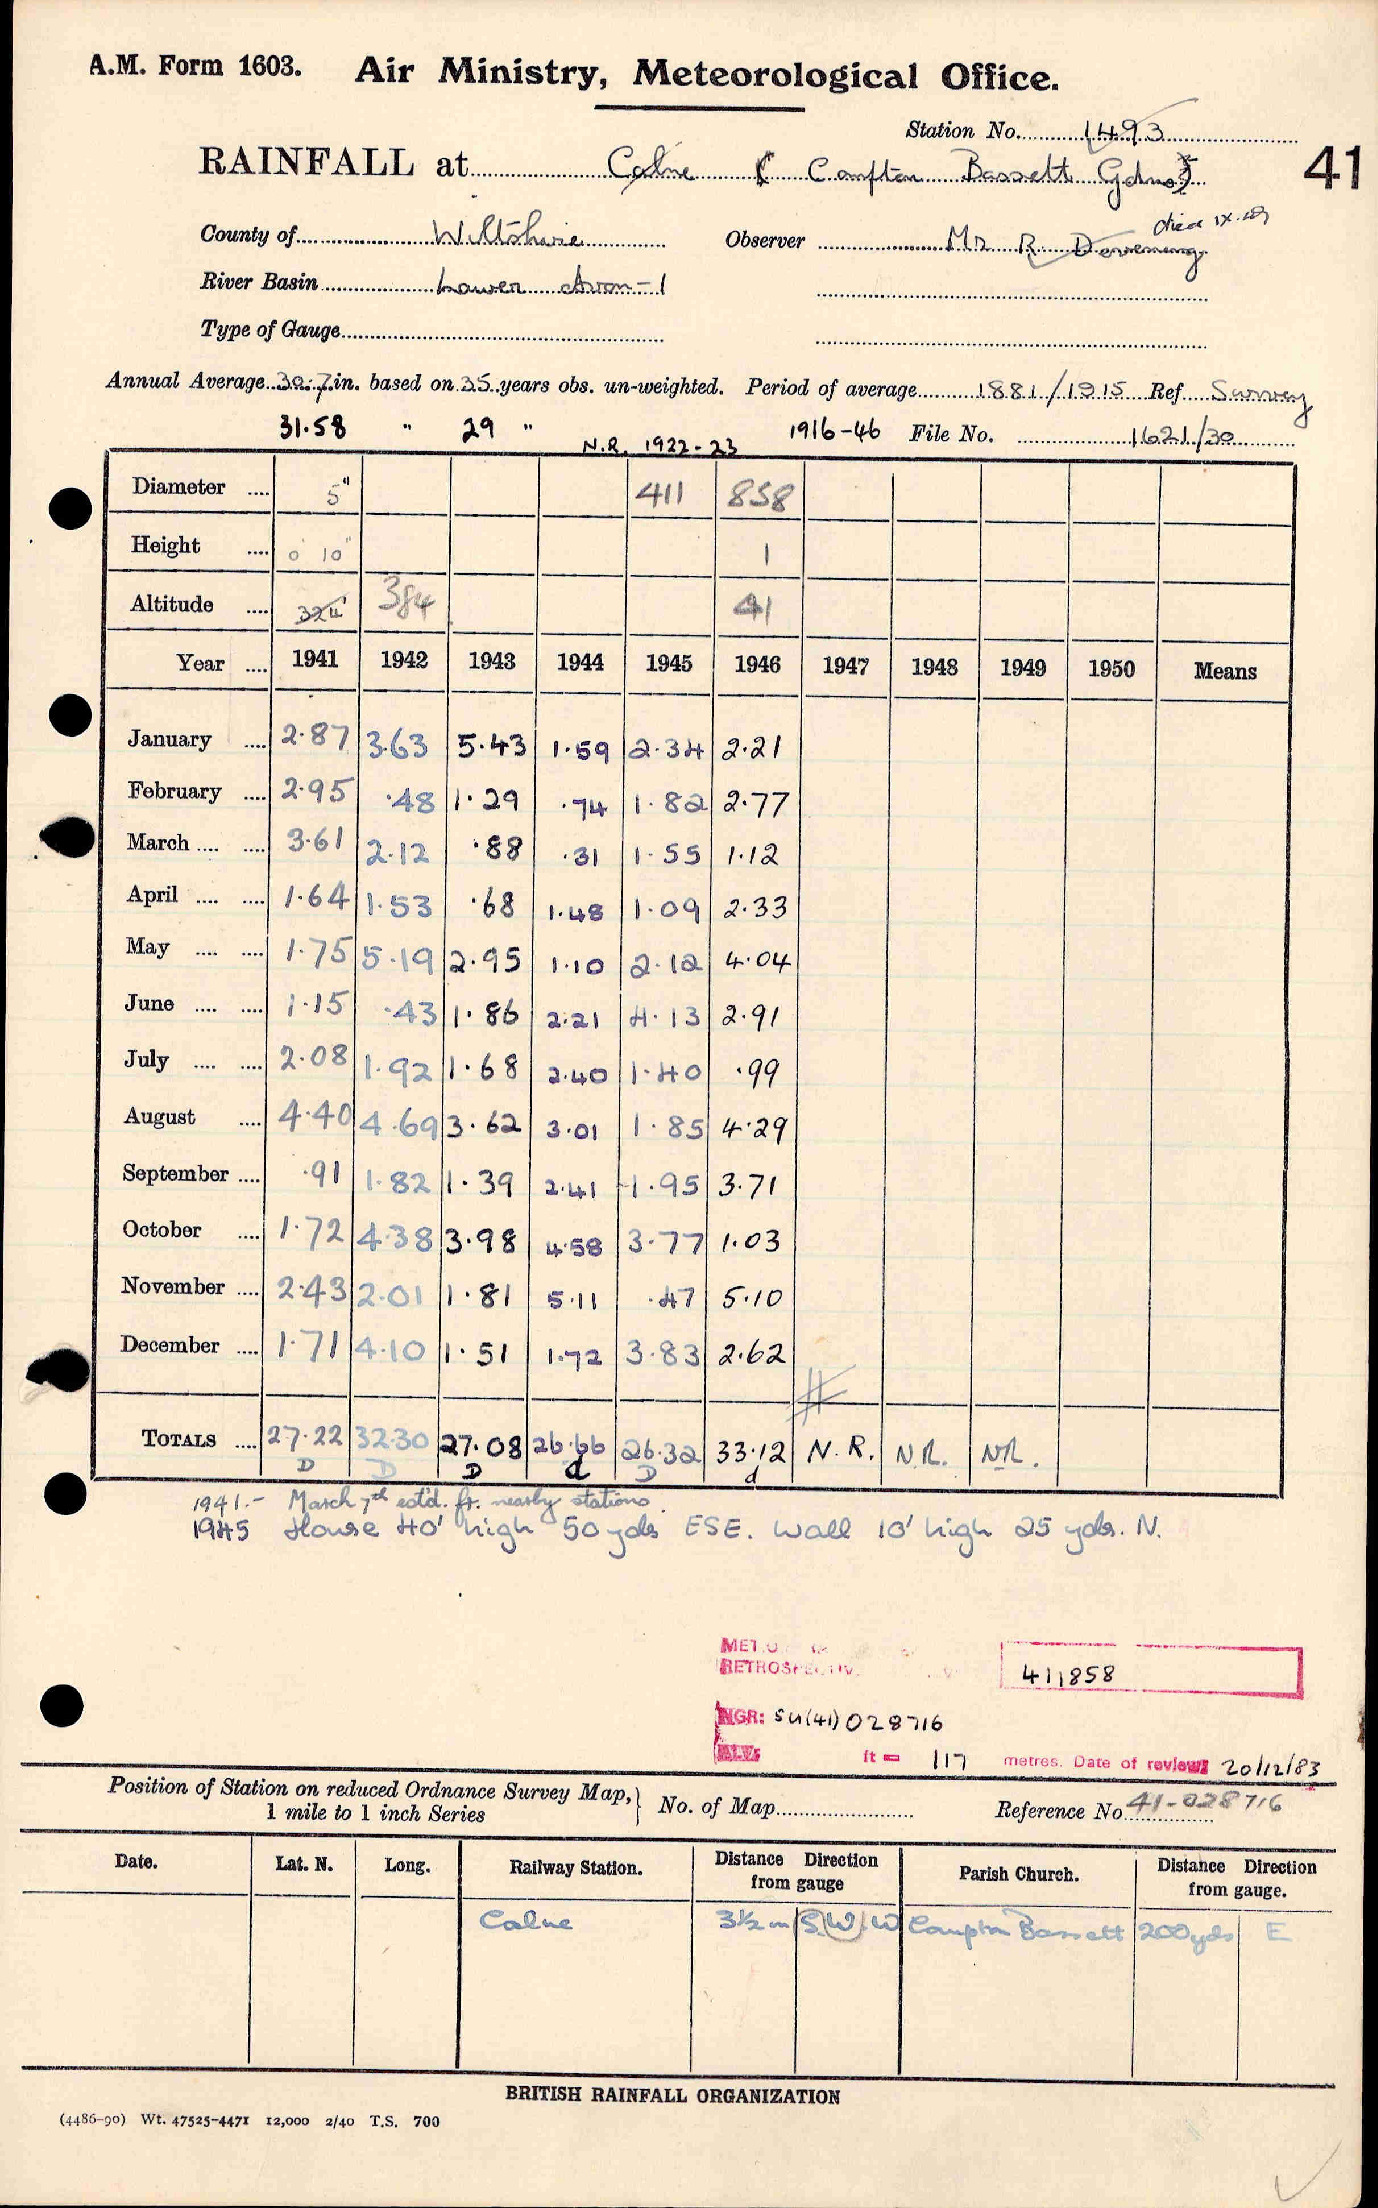 A.M. Form 1603. Air Ministry, Meteorological Office.
Station No. 1493
RAINFALL at Calne (Compton Bassett Gdns) 41
died IX.49
County of Wiltshire Observer Mr R.
River Basin Lower Avon-1
Type of Gauge
Annual Average 30.7 in. based on 35 years obs. un-weighted. Period of average 1881/1915 Ref Survey
31.58 " 29 " N.R. 1922-23 1916-46 File No. 1621/30
Diameter .... 5" 411 858
Height .... 0' 10" 1
Altitude .... 324' 384 41
Year .... 1941 1942 1943 1944 1945 1946 1947 1948 1949 1950 Means
January .... 2.87 3.63 5.43 1.59 2.34 2.21
February .... 2.95 .48 1.29 .74 1.82 2.77
March .... .... 3.61 2.12 .88 .31 1.55 1.12
April .... .... 1.64 1.53 .68 1.48 1.09 2.33
May .... .... 1.75 5.19 2.95 1.10 2.12 4.04
June .... .... 1.15 .43 1.86 2.21 4.13 2.91
July .... .... 2.08 1.92 1.68 2.40 1.40 .99
August .... 4.40 4.69 3.62 3.01 1.85 4.29
September .... .91 1.82 1.39 2.41 1.95 3.71
October .... 1.72 4.38 3.98 4.58 3.77 1.03
November .... 2.43 2.01 1.81 5.11 .47 5.10
December .... 1.71 4.10 1.51 1.72 3.83 2.62
TOTALS .... 27.22 32.30 27.08 26.66 26.32 33.12 N.R. N.R. N.R.
D D D d D d
1941.- March 7th estd. fr. nearby stations.
1945 House 40' high 50 yds ESE. Wall 10' high 25 yds. N.
MET.O
RETROSPECTIVE 411858
NGR: SU(41)028716
ALT: ft = 117 metres. Date of review: 20/12/83
Position of Station on reduced Ordnance Survey Map, 1 mile to 1 inch Series } No. of Map Reference No 41-028716
Date. Lat. N. Long. Railway Station. Distance Direction from gauge Parish Church. Distance Direction from gauge.
Calne 3½ m S.W.W Compton Bassett 200 yds E
BRITISH RAINFALL ORGANIZATION
(4486-90) Wt. 47525-4471 12,000 2/40 T.S. 700